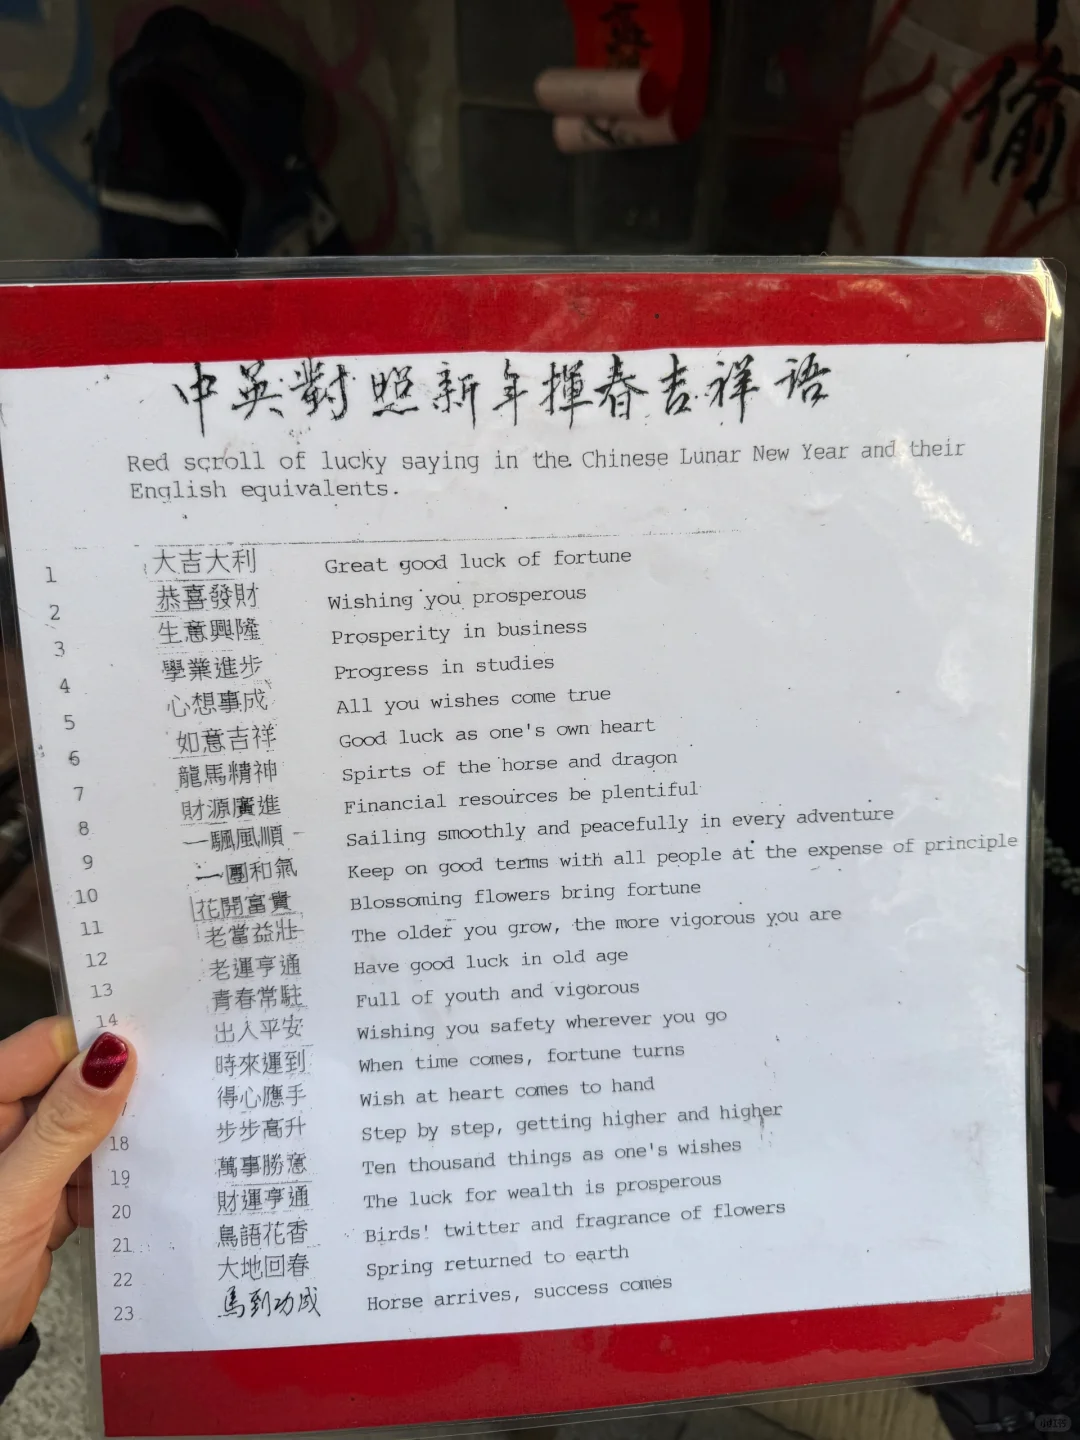 中英對照新年揮春吉祥语
Red scroll of lucky saying in the Chinese Lunar New Year and their
English equivalents.
1 大吉大利 Great good luck of fortune
2 恭喜發財 Wishing you prosperous
3 生意興隆 Prosperity in business
4 學業進步 Progress in studies
5 心想事成 All you wishes come true
6 如意吉祥 Good luck as one's own heart
7 龍馬精神 Spirts of the horse and dragon
8 財源廣進 Financial resources be plentiful
9 一颿風順 Sailing smoothly and peacefully in every adventure
10 一團和氣 Keep on good terms with all people at the expense of principle
11 花開富貴 Blossoming flowers bring fortune
12 老當益壯 The older you grow, the more vigorous you are
13 老運亨通 Have good luck in old age
14 青春常駐 Full of youth and vigorous
出入平安 Wishing you safety wherever you go
時來運到 When time comes, fortune turns
7 得心應手 Wish at heart comes to hand
18 步步高升 Step by step, getting higher and higher
19 萬事勝意 Ten thousand things as one's wishes
20 財運亨通 The luck for wealth is prosperous
21 鳥語花香 Birds' twitter and fragrance of flowers
22 大地回春 Spring returned to earth
23 馬到功成 Horse arrives, success comes
小红书